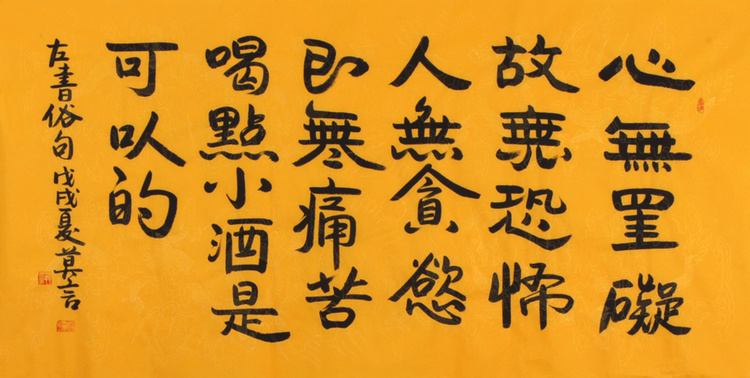 心無罣礙
故無恐怖
人無貪慾
即無痛苦
喝點小酒是
可以的
左書俗句戊戌夏莫言